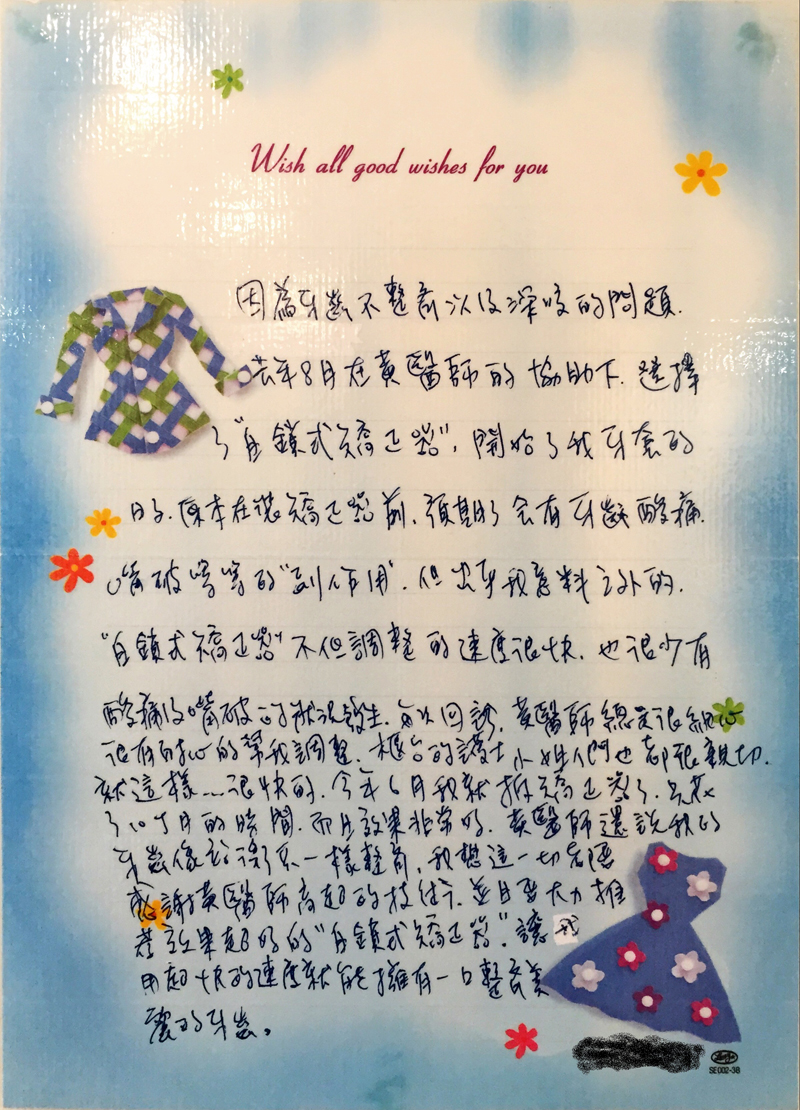 Wish all good wishes for you
因為牙齒不整齊以及深咬的問題.
去年8月在黃醫師的協助下.選擇
了"自鎖式矯正器",開始了我牙套的
日子.原本在裝矯正器前.預期了會有牙齒酸痛.
嘴破等等的"副作用".但出乎我意料之外的.
"自鎖式矯正器"不但調整的速度很快.也很少有
酸痛及嘴破的狀況發生.每次回診,黃醫師總是很細心
很有耐心的幫我調整.櫃台的護士小姐們也都很親切.
就這樣...很快的.今年6月我就拆矯正器了.只花
了10个月的時間.而且效果非常好.黃醫師還說我的
牙齒像藝術品一樣整齊,我想這一切都要
感謝黃醫師高超的技術.並且要大力推
薦效果超好的"自鎖式矯正器".讓我
用超快的速度就能擁有一口整齊美
麗的牙齒。
SE002-38